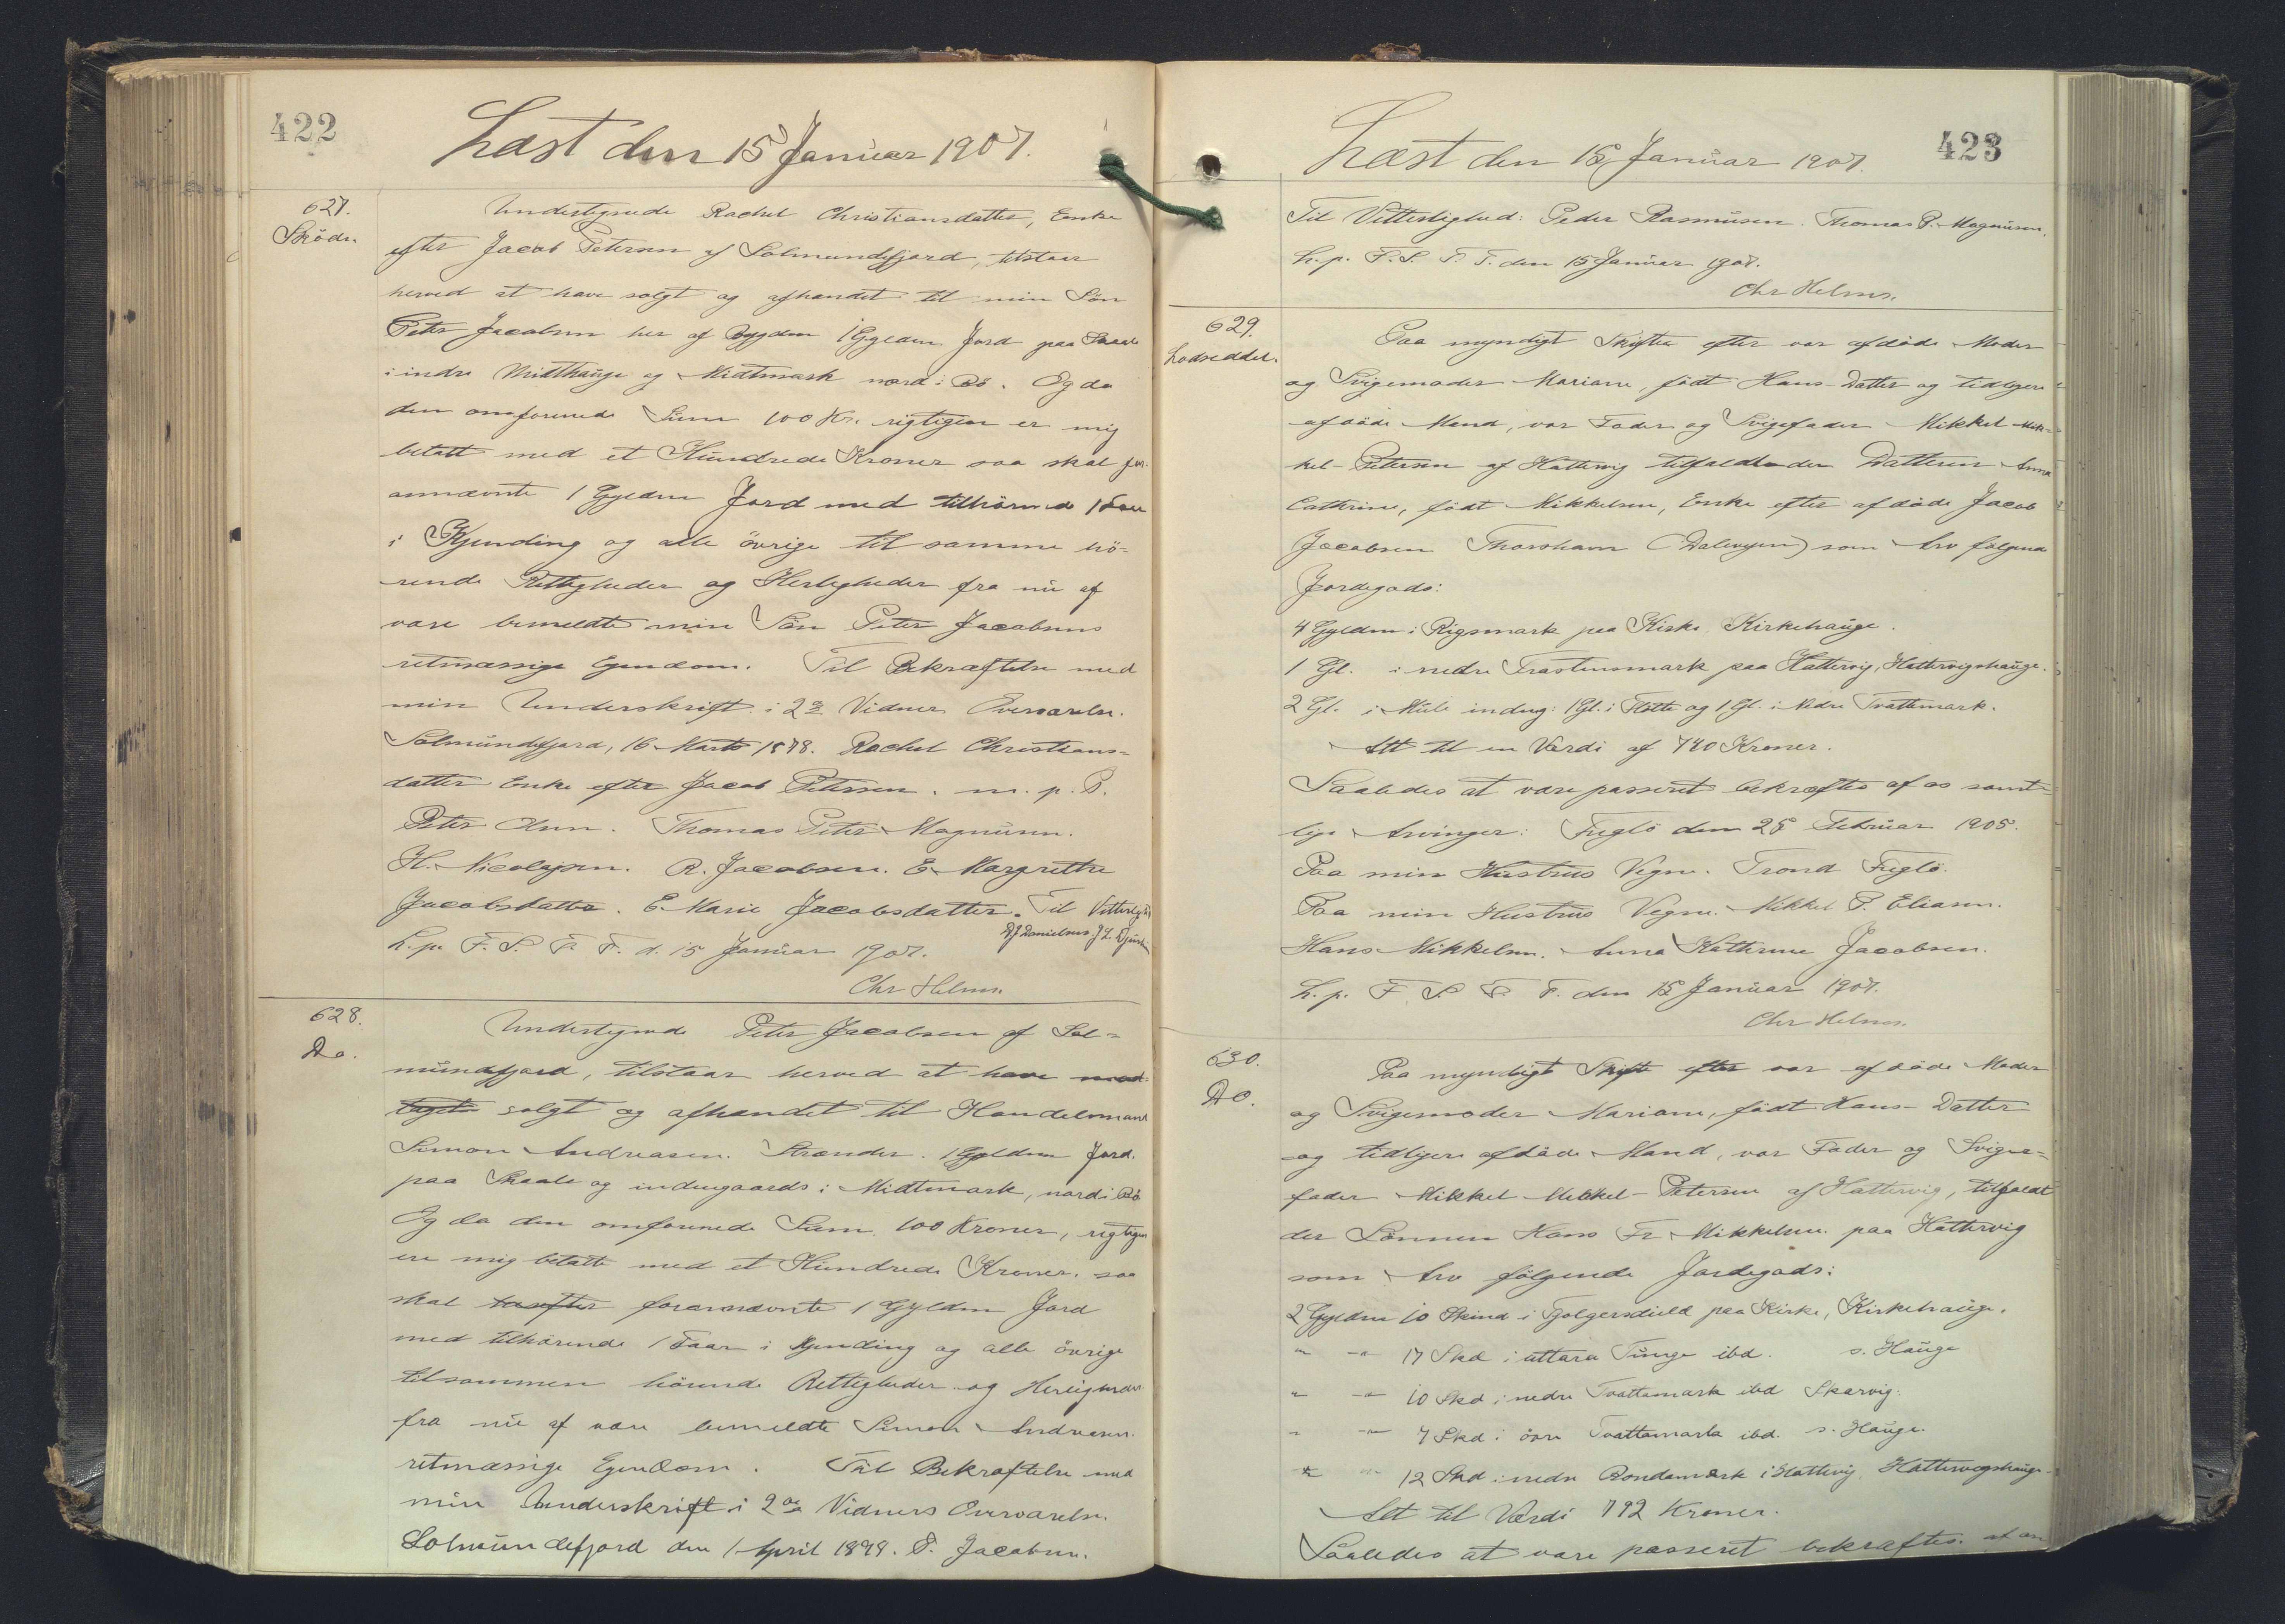 422
Læst den 15 Januar 1907.
627.
Skøde.
Undertegnede Rachel Christiansdatter, Enke
efter Jacob Petersen af Solmundefjord, tilstaar
herved at have solgt og afhændet til min Søn
Peter Jacobsen her af Bygden 1 Gylden Jord paa Skaale
i indre Midthauge og Midtmark nord i Bø. Og da
den omforenede Sum 100 Kr. rigtigen er mig
betalt med et Hundrede Kroner saa skal for-
annævnte 1 Gylden Jord med tilhørende 1 Faar
i Kjending og alle øvrige til samme hö-
rende Rettigheder og Herligheder fra nu af
være bemeldte min Søn Peter Jacobsens
retmæssige Ejendom. Til Bekræftelse med
min Underskrift i 2de Vidners Overværelse.
Solmundefjord, 16 Marts 1878. Rachel Christians-
datter Enke efter Jacob Petersen. m. p. P.
Peter Olsen. Thomas Peter Magnusen.
H. Nicolajsen. R. Jacobsen. E Margrethe
Jacobsdatter. E. Marie Jacobsdatter. Til Vitterlighed
D J Danielsen. J. L.
L. p. F. S. T. T. d. 15 Januar 1907.
Chr Helms.
628.
Do.
Undertegnede Peter Jacobsen af Sol-
mundefjord, tilstaar herved at have mod-
taget solgt og afhændet til Handelsmand
Simon Andreasen. Strænder. 1 Gylden Jord.
paa Skaale og indengaards i Midtmark, nord i Bø
Og da den omforenede Sum 100 Kroner, rigtigen
ere mig betalte med et Hundrede Kroner, saa
skal forannævnte 1 Gylden Jord
med tilhørende 1 Faar i Kjending og alle øvrige
tilsammen hörende Rettigheder og Herligheder
fra nu af være bemeldte Simon Andreasen
retmæssige Ejendom. Til Bekræftelse med
min Underskrift i 2de Vidners Overværelse.
Solmundefjord den 1 April 1899. P. Jacobsen.
423
Læst den 15 Januar 1907.
Til Vitterlighed: Peder Rasmusen. Thomas P. Magnusen.
L. p. F. S. T. T. den 15 Januar 1907.
Chr Helms.
629.
Lodseddel.
Paa myndigt Skifte efter vor afdøde Moder
og Svigemoder Mariane, født Hans-Datter og tidligere
afdøde Mand, vor Fader og Svigefader Mikkel Mik-
kel-Petersen af Hattervig tilfaldt der Datteren Anna
Cathrine, født Mikkelsen, Enke efter afdøde Jacob
Jacobsen Thorshavn (Dalevejen) som Arv følgende
Jordegods:
4 Gylden i Rigsmark paa Kirke, Kirkehauge.
1 Gl. i nedre Trastensmark paa Hattervig, Hattervigshauge.
2 Gl. i Mule indug: 1 Gl. i Flötte og 1 Gl. i Nedre Tvattemark.
Alt til en Værdi af 740 Kroner.
Saaledes at være passeret bekræftes af os samt-
lige Arvinger: Fuglö den 25 Februar 1905.
Paa min Hustrus Vegne. Trond Fuglö.
Paa min Hustrus Vegne. Mikkel P. Eliasen.
Hans Mikkelsen. Anna Kathrine Jacobsen.
L. p. F. S. T. T. den 15 Januar 1907.
Chr Helms.
630.
Do.
Paa myndigt Skifte efter vor afdøde Moder
og Svigemoder Mariane, født Hans-Datter
og tidligere afdøde Mand, vor Fader og Svige-
fader Mikkel Mikkel-Petersen af Hattervig, tilfaldt
der Sønnen Hans Fr Mikkelsen paa Hattervig
som Arv følgende Jordegods:
2 Gylden 10 Skind i paa Kirke, Kirkehauge.
" - " 17 Skd i uttara Tunge ibd. s. Hauge
" - " 10 Skd i nedre Tvattamark ibd Skarvig.
" - " 7 Skd i övre Tvattamark ibd. s. Hauge.
" " 12 Skd i nedre Rondamark i Hattervig, Hattervigshauge.
Alt til Værdi 792 Kroner.
Saaledes at være passeret bekræftes af os